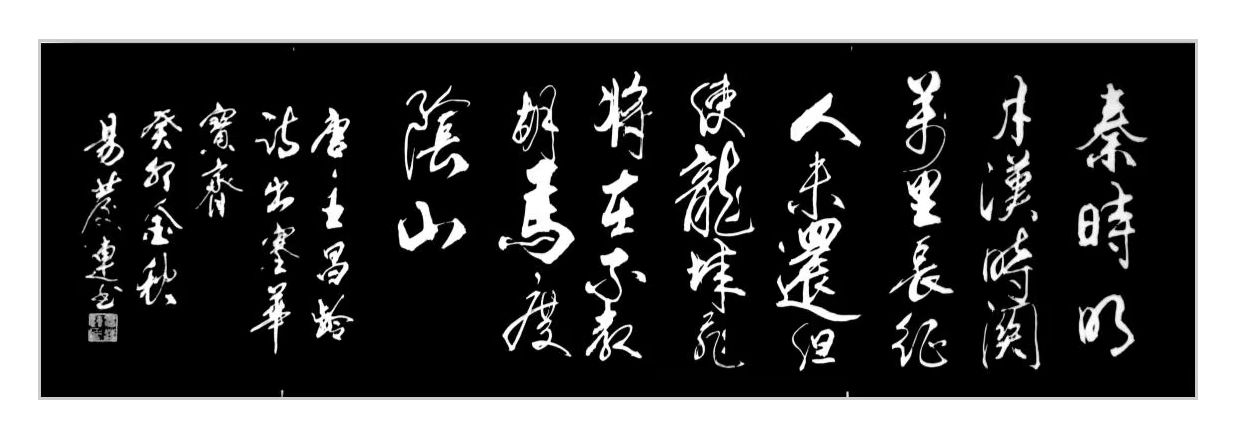 秦時明
月漢時関
萬里長征
人未還但
使龍城飛
將在不教
胡馬度
陰山
唐王昌齡
詩出塞華
寶齋
癸卯金秋
易農運書